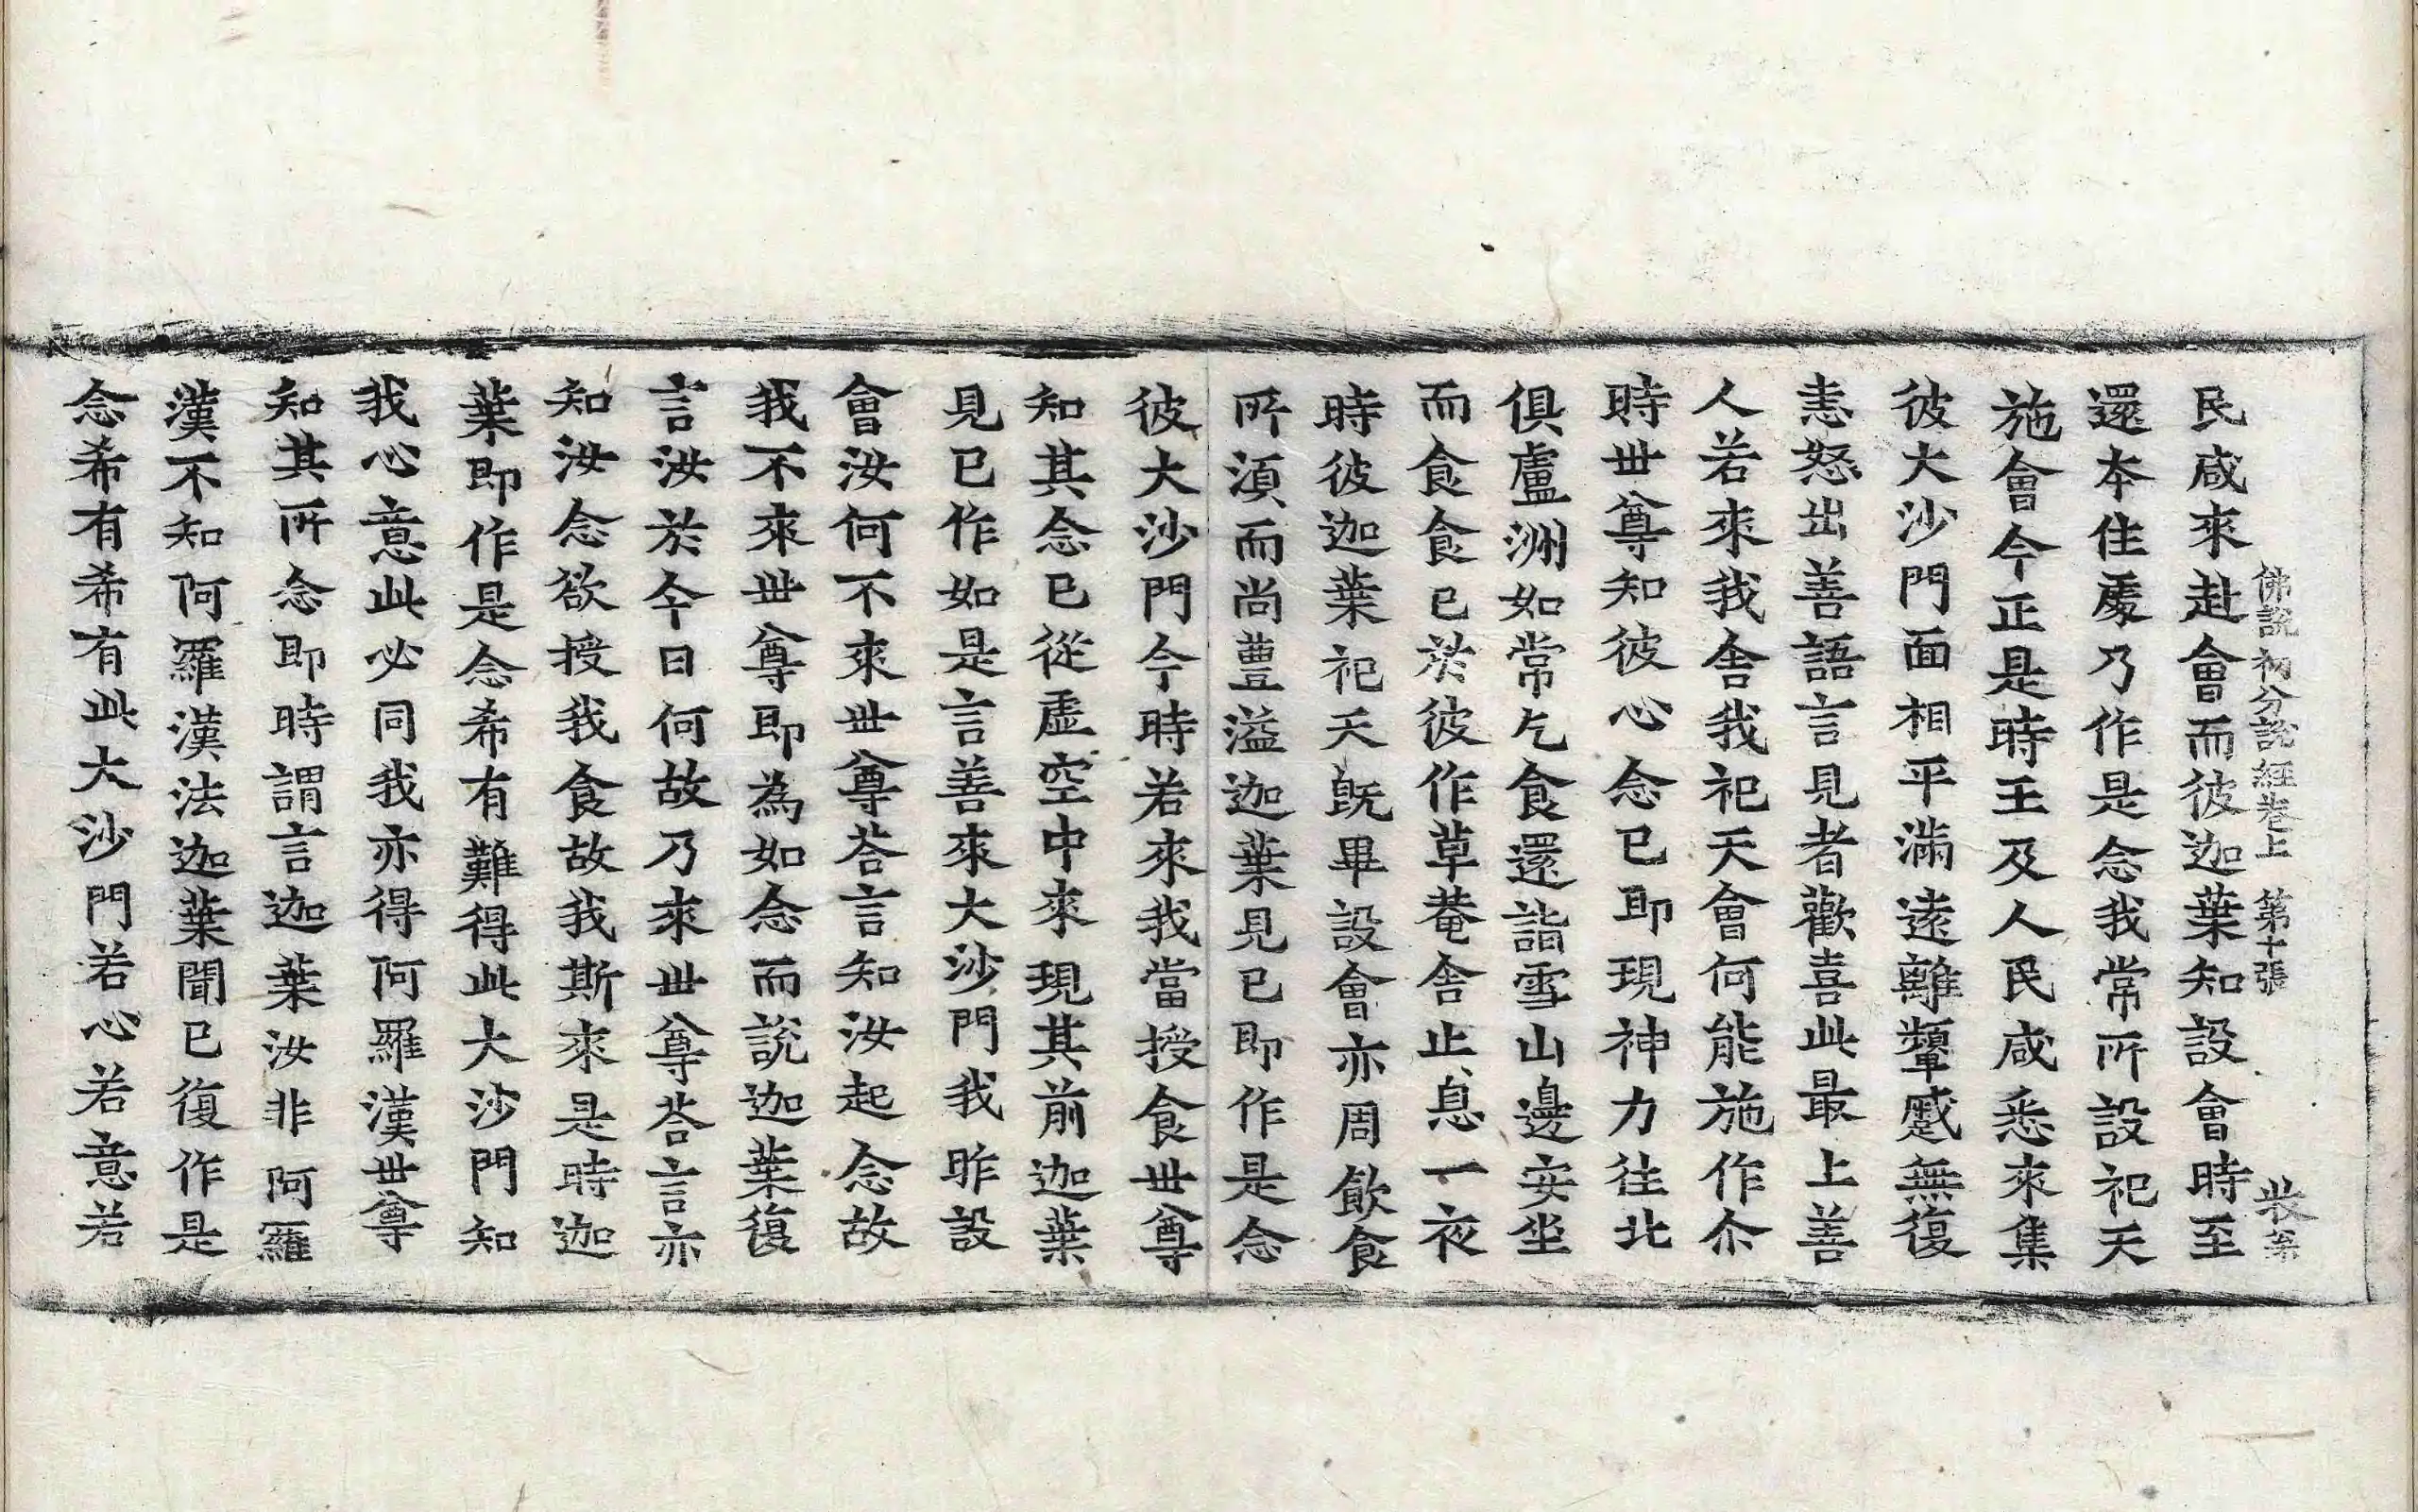 佛說初分說經卷上　第十張
民咸來赴會而彼迦葉知設會時至
還本住處乃作是念我常所設祀天
施會今正是時王及人民咸悉來集
彼大沙門面相平滿遠離顰蹙無復
恚怒出善語言見者歡喜此最上善
人若來我舍我祀天會何能施作尒
時世尊知彼心念已即現神力往北
俱盧洲如常乞食還詣雪山邊安坐
而食食已於彼作草菴舍止息一夜
時彼迦葉祀天旣畢設會亦周飲食
所須而尚豊溢迦葉見已即作是念
彼大沙門今時若來我當授食世尊
知其念已從虛空中來現其前迦葉
見已作如是言善來大沙門我昨設
會汝何不來世尊荅言知汝起念故
我不來世尊即為如念而說迦葉復
言汝於今日何故乃來世尊荅言亦
知汝念欲授我食故我斯來是時迦
葉即作是念希有難得此大沙門知
我心意此必同我亦得阿羅漢世尊
知其所念即時謂言迦葉汝非阿羅
漢不知阿羅漢法迦葉聞已復作是
念希有希有此大沙門若心若意若